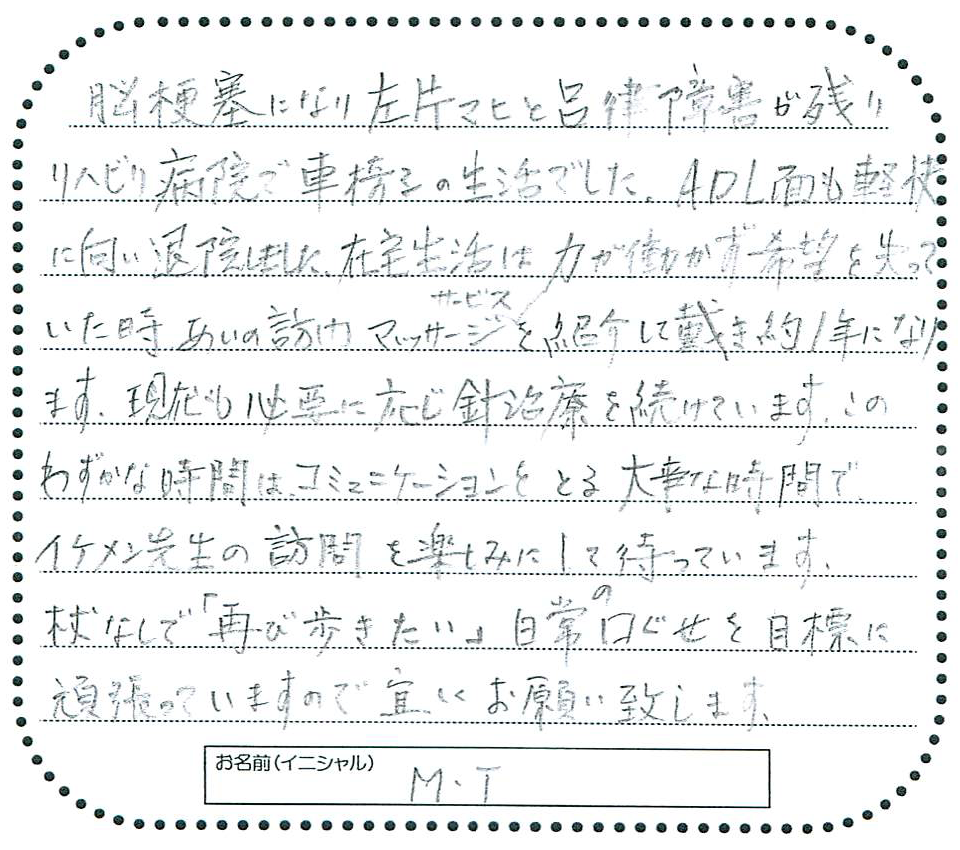 脳梗塞になり左片マヒと呂律障害が残り
リハビリ病院で車椅子の生活でした。ADL面も軽快
に向い退院しました。在宅生活は力が働かず希望を失って
いた時 あいの訪问マッサージサービスを紹介して戴き約1年になり
ます。現在も必要に応じ針治療を続けています。この
わずかな時間は、コミュニケーションをとる大事な時間で、
イケメン先生の訪問を楽しみにして待っています。
杖なしで「再び歩きたい」日常の口ぐせを目標に
頑張っていますので宜しくお願い致します。
お名前(イニシャル) M・T